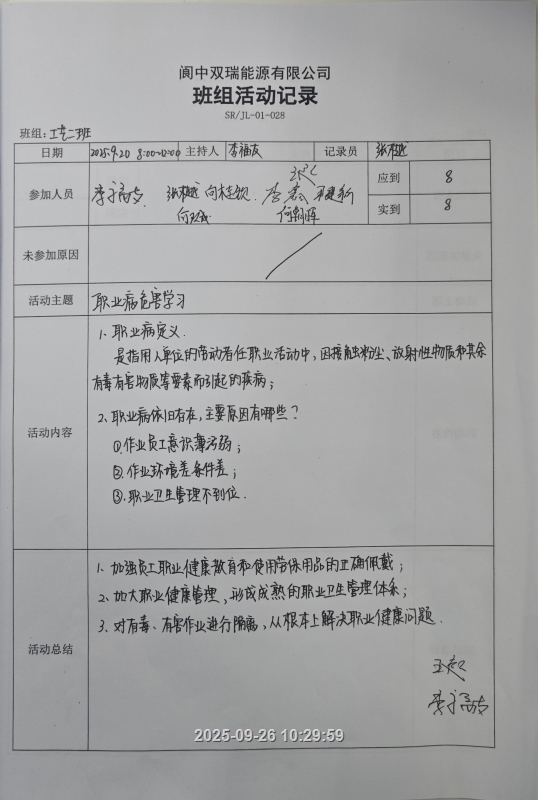 阆中双瑞能源有限公司
班组活动记录
SR/JL-01-028
班组：工艺二班
日期 2025.9.20 8:00~12:00 主持人 李福友 记录员
参加人员 应到 8
实到 8
未参加原因
活动主题 职业病危害学习
活动内容
1、职业病定义.
是指用人单位的劳动者在职业活动中，因接触粉尘、放射性物质和其余
有毒有害物质等要素而引起的疾病；
2、职业病依旧存在，主要原因有哪些？
①.作业员工意识薄弱；
②.作业环境差条件差；
③.职业卫生管理不到位.
活动总结
1、加强员工职业健康教育和使用劳保用品的正确佩戴；
2、加大职业健康管理，形成成熟的职业卫生管理体系；
3、对有毒、有害作业进行隔离，从根本上解决职业健康问题.
2025-09-26 10:29:59